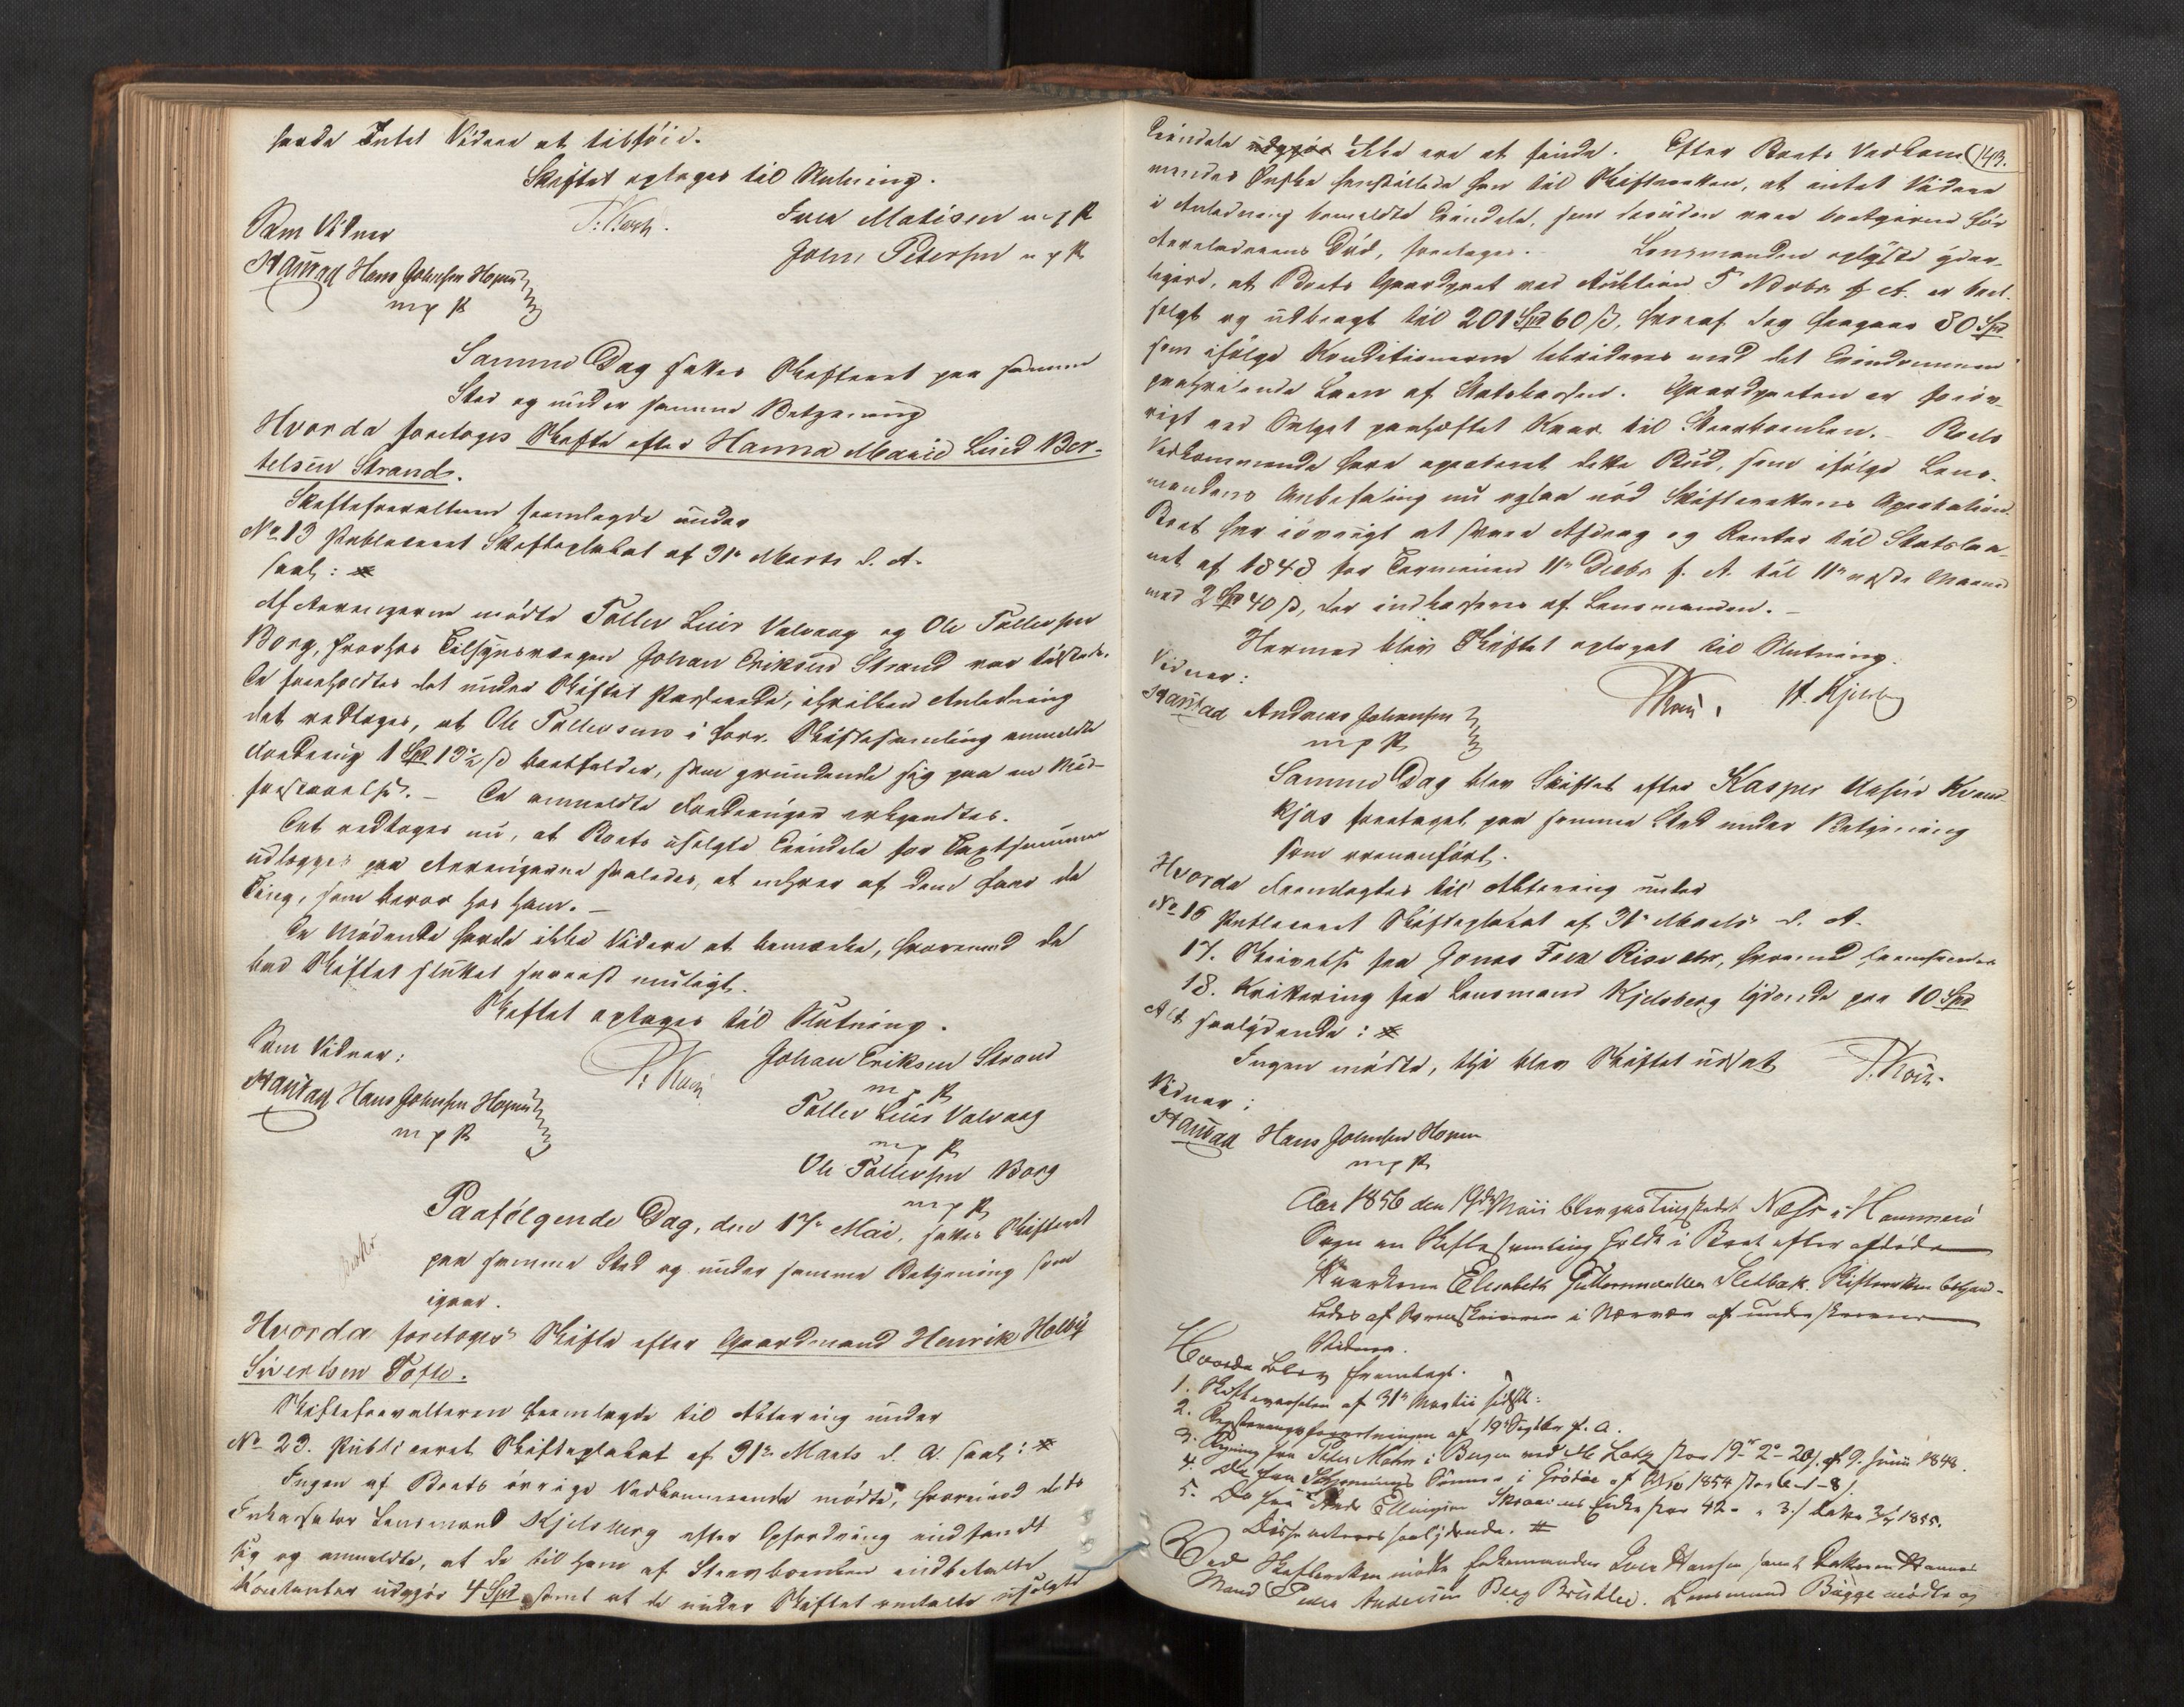 havde Intet Videre at tilføie.
Skiftet optages til Slutning.
Som Vidner T. Koch. Iver Matisen m p P
Haustad Hans Johnsen Hopen John Petersen m p P
m p P
Samme Dag sattes Skifteret paa samme
Sted og under samme Betjening
Hvorda foretoges Skifte efter Hanna Marie Lind Ber-
telsen Strand.
Skifteforvalteren fremlagde under
No 13 Publiceret Skifteplakat af 31te Marts d. A.
saal:
Af Arvingerne mødte Toller Lind Valvaag og Ole Tollersen
Borg, hvorhos Tilsynsværgen Johan Eriksen Strand var tilstede.
De foreholdtes det under Skiftet Passerede, i hvilken Anledning
det vedtoges, at Ole Tollersens i forr. Skiftesamling anmeldte
Fordring 1 Spd 13½ ß bortfalder, som grundende sig paa en Mis-
forstaaelse. – De anmeldte Fordringer erkjendtes.
Det vedtoges nu, at Boets usolgte Eiendele for Taxtsummen
udlægges paa Arvingerne saaledes, at enhver af dem faar de
Ting, som beror hos ham. –
De Mødende havde ikke Videre at bemærke, hvoremod de
bad Skiftet sluttet snarest muligt.
Skiftet optages til Slutning.
Som Vidner: T. Koch Johan Eriksen Strand
m p P
Haustad Hans Johnsen Hopen Toller Lind Valvaag
m p P m p P
Ole Tollersen Borg
m p P
Paafølgende Dag, den 17de Mai, sattes Skifteret
paa samme Sted og under samme Betjening som
igaar.
Hvorda foretoges Skifte efter Gaardmand Henrik Holby
Sivertsen Tofte.
Skifteforvalteren fremlagde til Aktering under
No 23. Publiceret Skifteplakat af 31te Marts d. A. saal:
Ingen af Boets øvrige Vedkommende mødte, hvorimod dets
Inkassator Lensmand Kjelsberg efter Opfordring indfandt
sig og anmeldte, at de til ham af Stervboenken indbetalte
Kontanter udgjør 4 Spd samt at de under Skiftet omtalte usolgte
Eiendele udgjør ikke ere at finde. Efter Boets Vedkom- 143.
mendes Ønske henstillede han til Skifteretten, at intet Videre
i Anledning bemeldte Eiendele, som desuden vare bortgivne før
Arveladerens Død, foretages. Lensmanden oplyste yder-
ligere, at Boets Gaardpart ved Auktion 5 Novbr f. A. er bort-
solgt og udbragt til 201 Spd 60 ß, hvoraf dog fragaar 80 Spd
som ifølge Konditionerne likvideres med det Eiendommen
paahvilende Laan af Statskassen. Gaardparten er forøv-
rigt ved Salget paaheftet Kaar til Stervboenken. – Boets
Vedkommende have approberet dette Bud, som ifølge Lens-
mandens Anbefaling nu ogsaa nød Skifterettens Approbation.
Boet har iøvrigt at svare Afdrag og Renter til Statslaa-
net af 1848 for Terminen 11te Decbr f. A. til 11te næste Maaned
med 2 Spd 40 ß, der indkasseres af Lensmanden. –
Hermed blev Skiftet optaget til Slutning.
Vidner: T. Koch. H. Kjelsberg
Haustad Andreas Johansen
m p P
Samme Dag blev Skiftet efter Kasper
kjos foretaget paa samme Sted under Betjening
som ovenanført.
Hvorda fremlagdes til Aktering under
No 16 Publiceret Skifteplakat af 31te Marts d. A.
17. Skrivelse fra Jonas, hvormed fremsendes
18. Kvittering fra Lensmand Kjelsberg lydende paa 10 Spd
Alt saalydende:
Ingen mødte, thi blev Skiftet udsat T. Koch.
Vidner:
Haustad Hans Johnsen Hopen
m p P
Aar 1856 den 19de Maii blev paa Tingstedet Næss i Hammerø
Sogn en Skiftesamling holdt i Boet efter afdøde
Elisabeth Guttormsdatter Sletbak. Skifteretten betjen-
tes af Sorenskriveren i Nærvær af underskrevne
Vidner.
Hvorda blev fremlagt.
1. Skifteindkaldelsen af 31te Martii sidstl:
2. Registreringsforretningen af 19de Septbr f. A.
3. Regning fra Peter Mohn i Bergen stor 19 - 2 - 20 ß. af 9. Junii 1848.
4. Do fra Schjøninges Sønner i Grødøe af 1854 stor 6-1-8 ß.
5. Do fra Ellingsen Skraavens Enke stor 42 - " 3 ß Dato 3/7 1855.
Disse acteres saalydende.
Ved Skifteretten mødte Enkemanden Iver Hansen samt Datteren Hannas
Mand Peder Andersen Berg. Lensmand Bugge mødte og